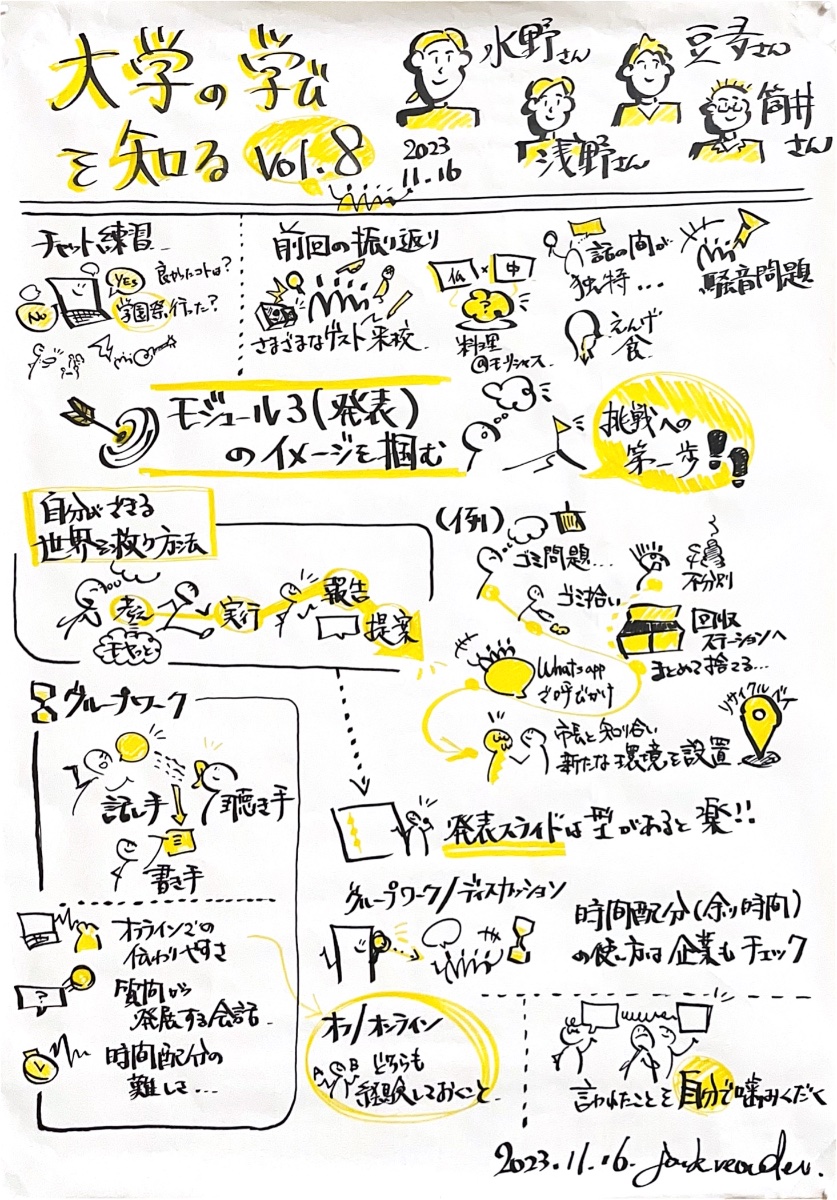 大学の学び
を知る vol.8
水野さん
豆多さん
浅野さん
筒井さん
2023
11.16
チャット練習
YES
No
良かったコトは?
学園祭行った?
前回の振り返り
さまざまなゲスト来校
仏×中
料理
@モーリシャス
話の間が
独特…
えんげ
食
騒音問題
モジュール3(発表)
のイメージを掴む
挑戦への
第一歩!!
自分ができる
世界を救う方法
考え
モヤッと
実行
報告
提案
(例)
ゴミ問題…
ゴミ拾い
不分別
回収
ステーションへ
まとめて捨てる…
Whatsapp
で呼びかけ
市長と知り合い
新たな環境を設置
グループワーク
話し手
聴き手
書き手
オンラインでの
伝わりやすさ
?
質問から
発展する会話
時間配分の
難しさ…
発表スライドは型があると楽!!
グループワーク/ディスカッション
時間配分(余り時間)
の使い方は企業もチェック
オフ/オンライン
A
B
どちらも
経験しておくこと
言われたことを自分で噛みくだく
2023.11.16.